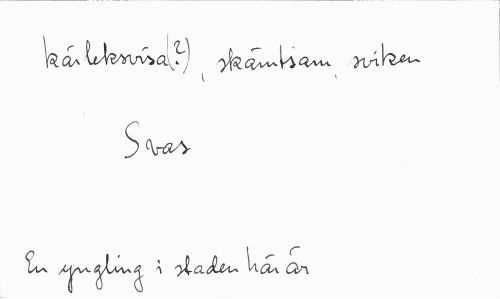 kärleksvisa(?), skämtsam, sviken
Svas
En yngling i staden här är